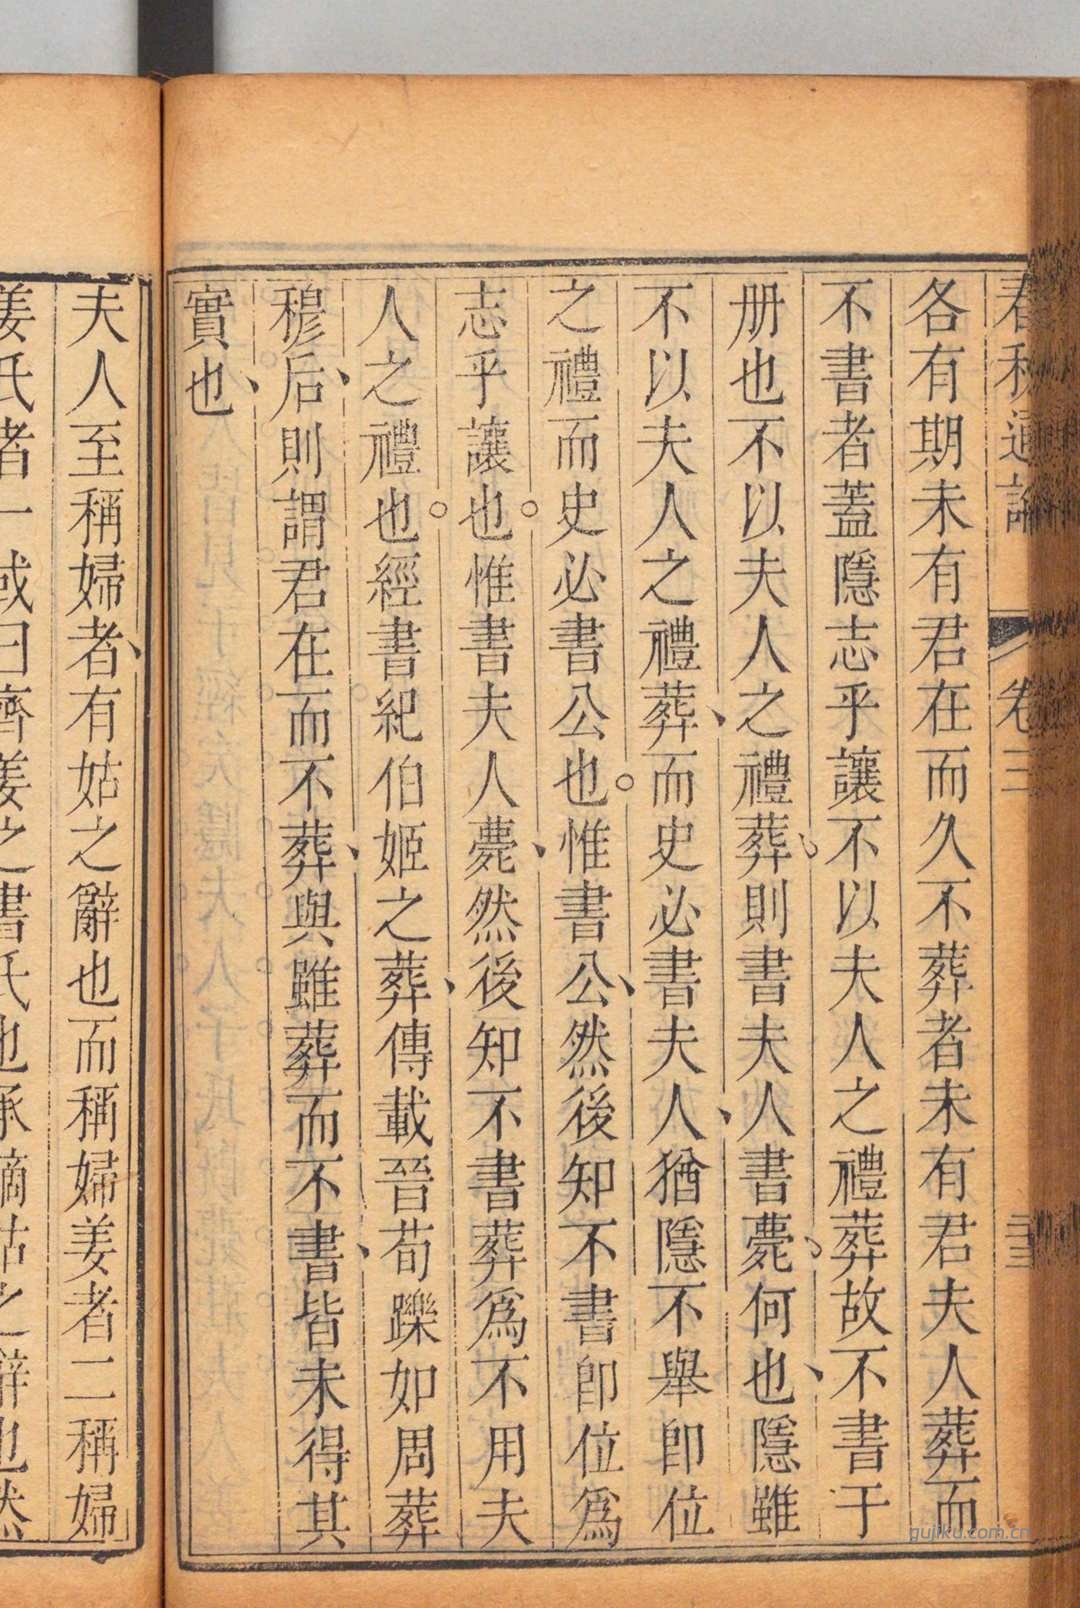 春秋通論 卷三
各有期未有君在而久不葬者未有君夫人葬而
不書者蓋隱志乎讓不以夫人之禮葬故不書于
册也不以夫人之禮葬則書夫人書薨何也隱雖
不以夫人之禮葬而史必書夫人猶隱不舉卽位
之禮而史必書公也惟書公然後知不書卽位爲
志乎讓也惟書夫人薨然後知不書葬爲不用夫
人之禮也經書紀伯姬之葬傳載晉荀躒如周葬
穆后則謂君在而不葬與雖葬而不書皆未得其
實也
夫人至稱婦者有姑之辭也而稱婦姜者二稱婦
姜氏者一或曰齊姜之書氏也承嫡姑之辭也然
gujiku.com.cn